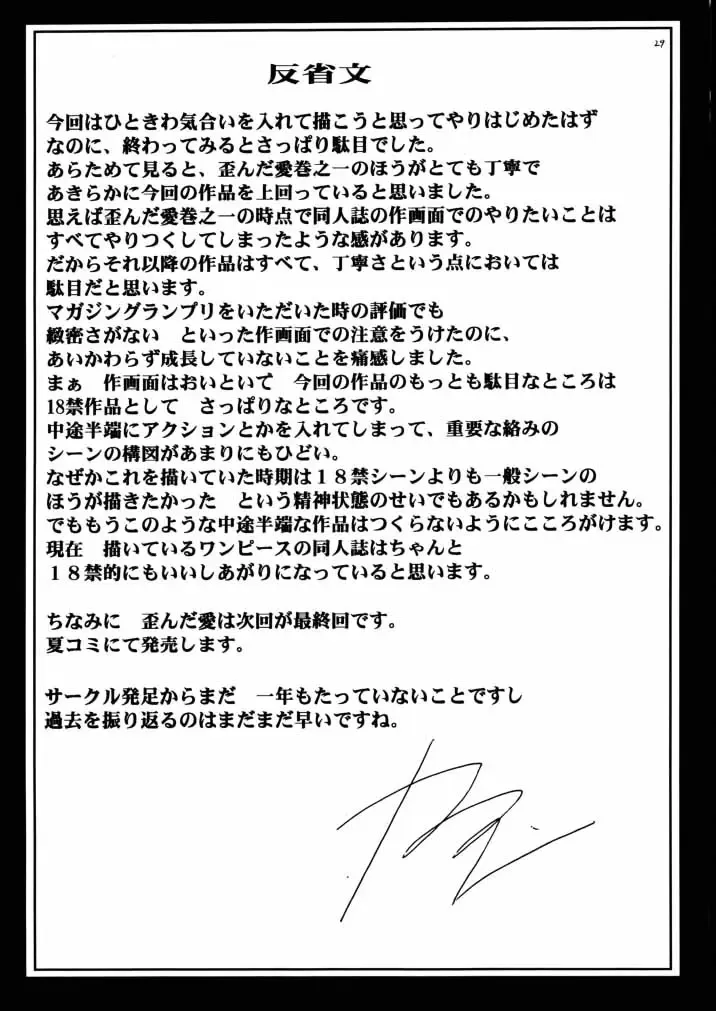 29
反省文
今回はひときわ気合いを入れて描こうと思ってやりはじめたはず
なのに、終わってみるとさっぱり駄目でした。
あらためて見ると、歪んだ愛巻之一のほうがとても丁寧で
あきらかに今回の作品を上回っていると思いました。
思えば歪んだ愛巻之一の時点で同人誌の作画面でのやりたいことは
すべてやりつくしてしまったような感があります。
だからそれ以降の作品はすべて、丁寧さという点においては
駄目だと思います。
マガジングランプリをいただいた時の評価でも
緻密さがない　といった作画面での注意をうけたのに、
あいかわらず成長していないことを痛感しました。
まぁ　作画面はおいといて　今回の作品のもっとも駄目なところは
18禁作品として　さっぱりなところです。
中途半端にアクションとかを入れてしまって、重要な絡みの
シーンの構図があまりにもひどい。
なぜかこれを描いていた時期は１８禁シーンよりも一般シーンの
ほうが描きたかった　という精神状態のせいでもあるかもしれません。
でももうこのような中途半端な作品はつくらないようにこころがけます。
現在　描いているワンピースの同人誌はちゃんと
１８禁的にもいいしあがりになっていると思います。
ちなみに　歪んだ愛は次回が最終回です。
夏コミにて発売します。
サークル発足からまだ　一年もたっていないことですし
過去を振り返るのはまだまだ早いですね。